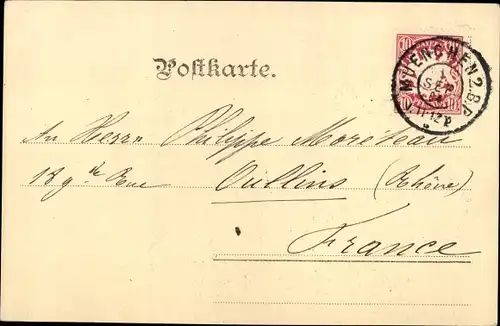 Postkarte.
10
MUENCHEN 2.B.P.
1
SEP
An Herrn Philippe Moreteau
18 g de Rue
Oullins (Rhône)
France